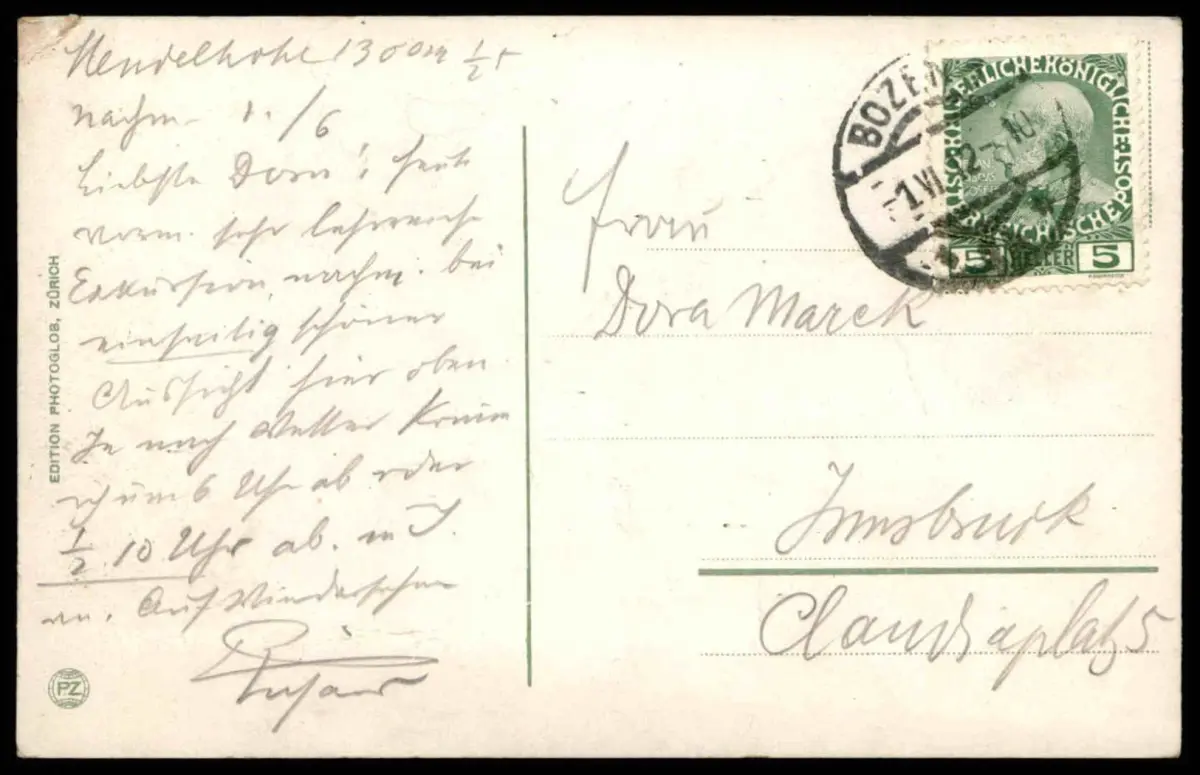 Mendelhöhe 1300m ½ 5
Nachm. 1./6
Liebste Dora! heute
vorm. sehr lehrreiche
Exkursion, nachm. bei
einseitig schöner
Aussicht hier oben.
Je nach Wetter komme
ich um 6 Uhr ab oder
½ 10 Uhr ab. in I.
an. Auf Wiedersehen
EDITION PHOTOGLOB, ZÜRICH
PZ
BOZEN
1.VI.12
KAISERLICHE KÖNIGLICHE
ÖSTERREICHISCHE POST
5 HELLER 5
Frau
Dora Marek
Innsbruck
Claudiaplatz 5